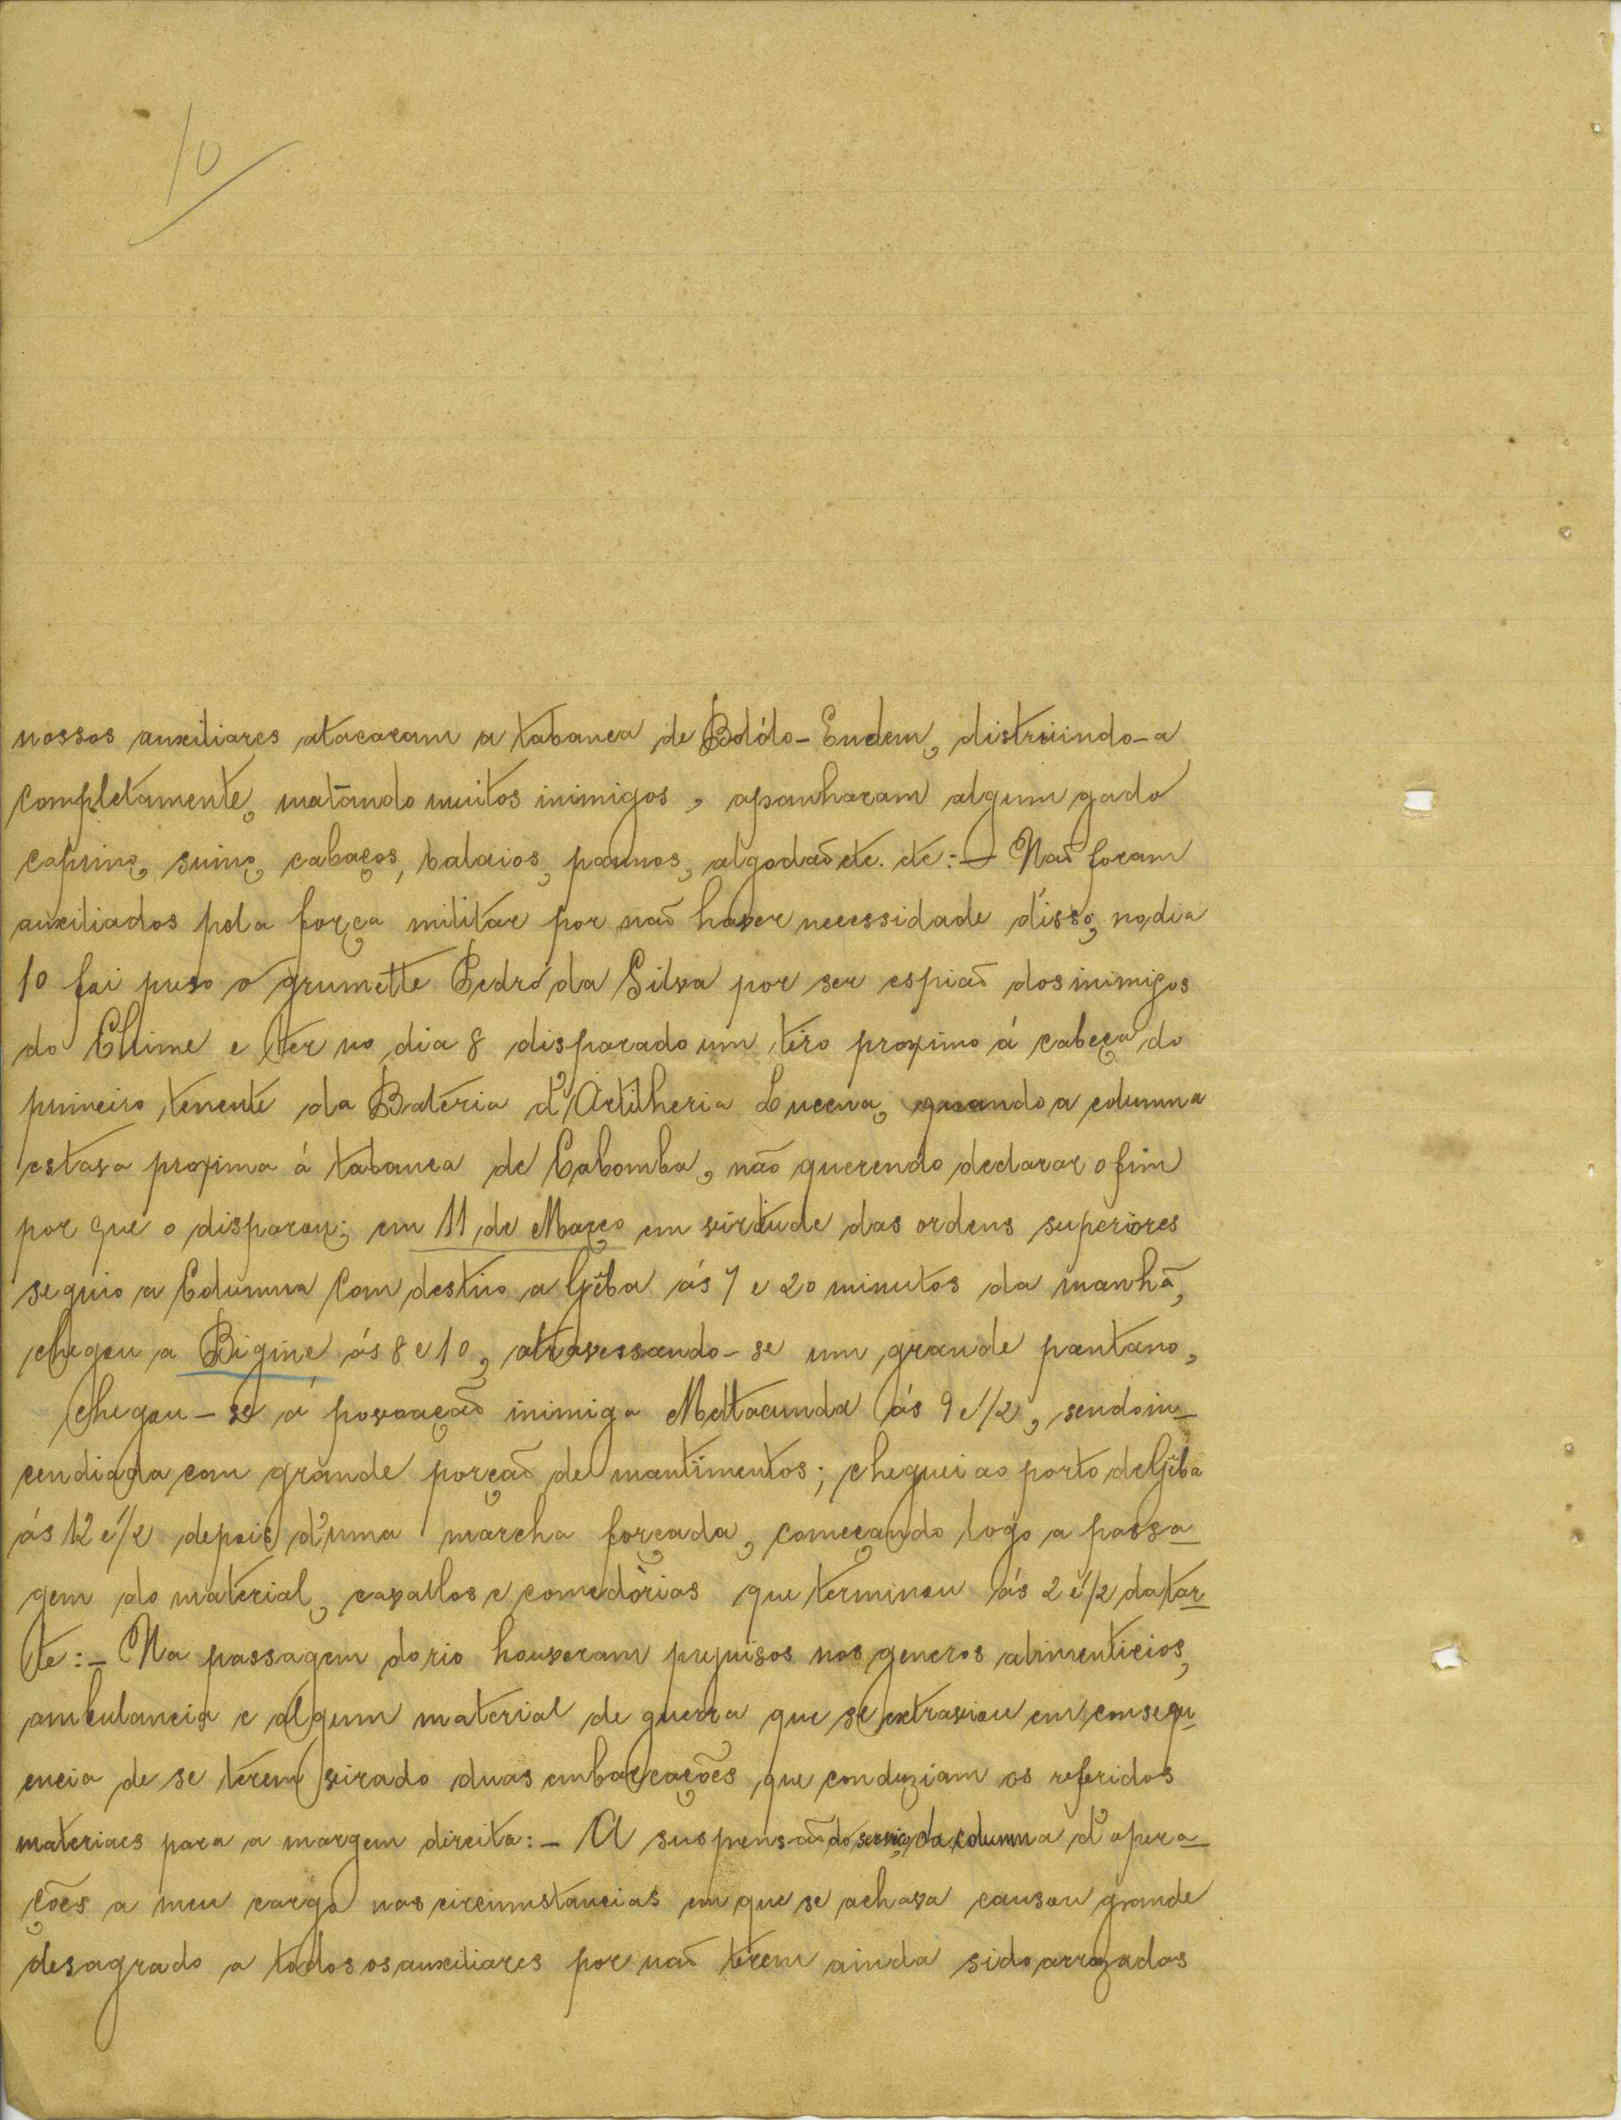 10
nossos auxiliares atacaram a tabanca de Bolólo-Endem, distruindo-a
completamente, matando muitos inimigos, apanharam algum gado
caprino, suino, cabaços, balaios, pannos, algodão etc. etc:— Não foram
auxiliados pela força militar por não haver necessidade d'isso, no dia
10 foi preso o grumette Pedro da Silva por ser espião dos inimigos
do Chime e ter no dia 8 disparado um tiro proximo á cabeça do
primeiro tenente da Bateria d'Artilheria Lucena, quando a columna
estava proxima á tabanca de Cabomba, não querendo declarar o fim
por que o disparou; em 11 de Março em virtude das ordens superiores
seguio a Columna com destino a Gêba ás 7 e 20 minutos da manhã,
chegou a Bigine ás 8 e 10, atravessando-se um grande pantano,
chegou-se á povoação inimiga Meltacunda ás 9 e 1/2, sendo in-
cendiada com grande porção de mantimentos; cheguei ao porto de Gêba
ás 12 e 1/2 depois d'uma marcha forçada, começando logo a passa-
gem do material, cavallos e comedorias que terminou ás 2 e 1/2 da tar-
de:- Na passagem do rio houveram prejuisos nos generos alimenticios,
ambulancia e algum material de guerra que se extraviou em consequ-
encia de se terem virado duas embarcações que conduziam os referidos
materiaes para a margem direita:- A suspensão do serviço da columna d'opera-
ções a meu cargo nas circumstancias em que se achava causou grande
desagrado a todos os auxiliares por não terem ainda sido arrazadas